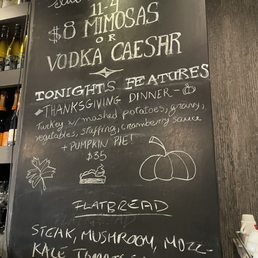 11-4
$8 MIMOSAS
OR
VODKA CAESAR
TONIGHTS FEATURES
THANKSGIVING DINNER -
Turkey w/ mashed potatoes, gravy,
vegetables, stuffing, cranberry sauce
+ PUMPKIN PIE!
$35
FLATBREAD
STEAK, MUSHROOM, MOZZ-
KALE